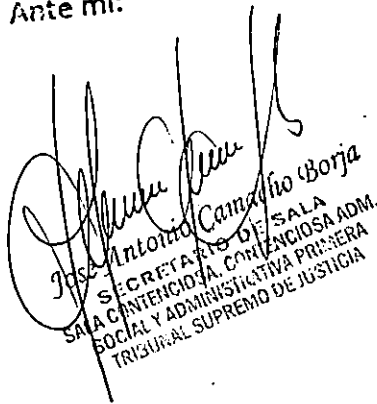 Ante mí:
José Antonio Camacho Borja
SECRETARIO DE SALA
SALA CONTENCIOSA, CONTENCIOSA ADM.
SOCIAL Y ADMINISTRATIVA PRIMERA
TRIBUNAL SUPREMO DE JUSTICIA